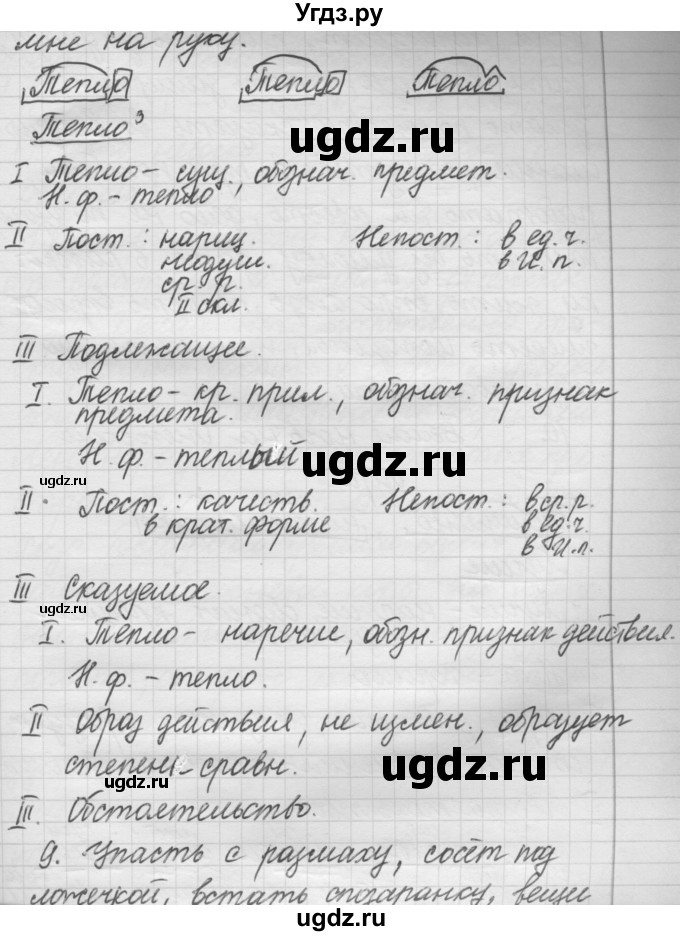 Угдз.ру
мне на руку.
Тепло Тепло Тепло
Тепло³
I Тепло - сущ., обознач. предмет.
Н. ф. - тепло
II Пост.: нариц. Непост.: в ед. ч.
неодуш. в И. п.
ср. р.
II скл.
III Подлежащее.
I. Тепло - кр. прил., обознач. признак
предмета.
Н. ф. - теплый
II. Пост.: качеств. Непост.: в ср. р.
в крат. форме в ед. ч.
в И. п.
III Сказуемое.
I. Тепло - наречие, обозн. признак действия.
Н. ф. - тепло.
II Образ действия, не измен., образует
степень сравн.
III. Обстоятельство.
9. Упасть с размаху, сосёт под
ложечкой, встать спозаранку, вещи
ugdz.ru
ugdz.ru
ugdz.ru
ugdz.ru
ugdz.ru
ugdz.ru
ugdz.ru
ugdz.ru